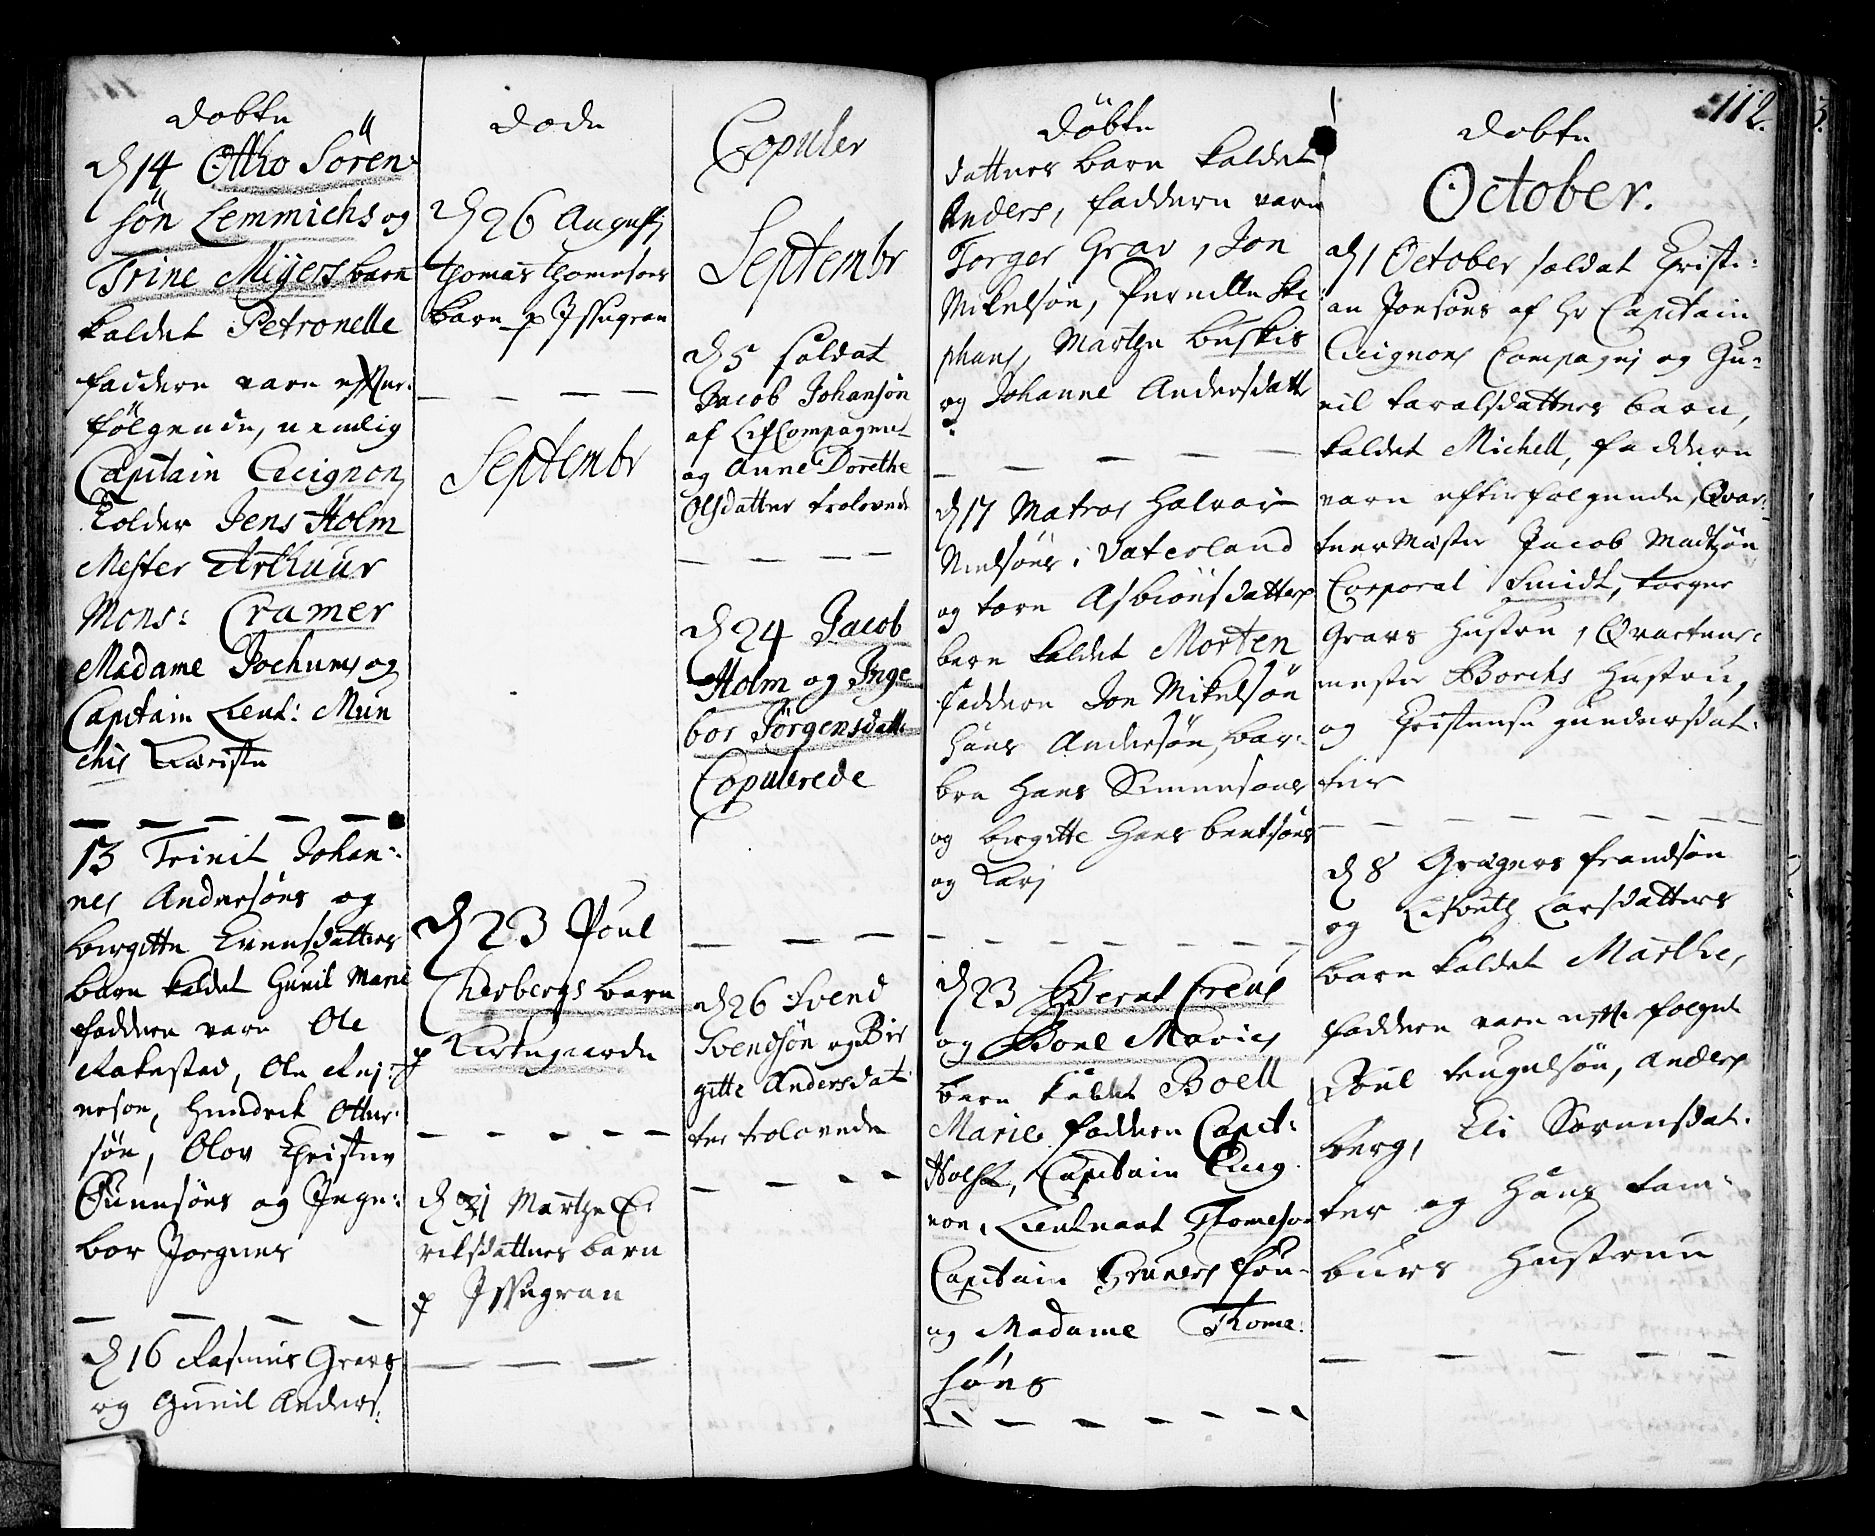 Dobte
D 14 Otto Sören
sön Lemmichs og
Trine Mÿers barn
kaldet Petronelle
faddere vare efter
fölgende, nemlig
Capitain Cicignon
Tolder Jens Holm
Mester Arthuur
Mons: Cramer
Madame Jochums og
Capitain Lieut: Mün
chis Kæriste
13 Trinit Johan:
nes Andersöns og
Birgitte Evensdatters
barn kaldet Gunil Marie
faddere vare Ole
Rakestad, Ole Rej:
nerson, Hendrik Otter:
sön, Olov Christen
Gunnsöns og Inge:
bor Jorgens
D 16 Rasmus Gravs
og Gunil Anders:
Dode
D 26 Augusti
Thomas Thomesøns
barn p Issegran
Septembr
D 23 Poul
Therbergs barn
p Kirkegaarde
D 31 Marthe E
riksdatters barn
p Issegran
Copuler
Septembr
D 5 Soldat
Jacob Johansön
af LifCompagniet
og Anne Dorethe
Olsdatter trolovede
D 24 Jacob
Holm og Inge
bor Jörgensdatt:
Copulerede
D 26 Svend
Svendsön og Bir
gitte Andersdat
ter trolovede
112.
Döbte
datters barn kaldet
Anders, faddere vare
Torger Grav, Jon
Mikelsön, Pernille Ste
phans, Marthe Buskis
og Johanne Andersdatt
D 17 Matros Halvor
Nielsöns i Vaterland
og Karn Asbiönsdatters
barn kaldet Morten
faddere Jon Mikelsön
Hans Andersön, Bar:
bra Hans Simensöns
og Birgitte Hans Bentsöns
og Karj
D 23 Bernt Creüs
og Bonl Maries
barn kaldet Boell
Marie faddere Capit:
Holst, Capitain Cicig
non, Lieutnant Thomeson
Capitain Gruners frü
og Madame Thome:
söns
Dobte
October.
D 1 October soldat Christi:
an Jonsöns af Hr Capitain
Cicignons Compagni og Gu:
nil Taralsdatters barn,
kaldet Michell, faddere
vare efterfolgende, Qvar:
teerMester Jacob Madtzön
Corporal Smidt, Torger
Gravs Hustru, Qvarteer:
mester Borchs Hustru,
og Christense Gundersdat:
ter
D 8 Gregers Frandsön
og Lisbeth Larsdatters
barn kaldet Marthe,
faddere vare effterfolgen
Poul Engelsön, Anders
berg, Eli Sörensdat:
ter og Hans Tam:
burs Hustrue